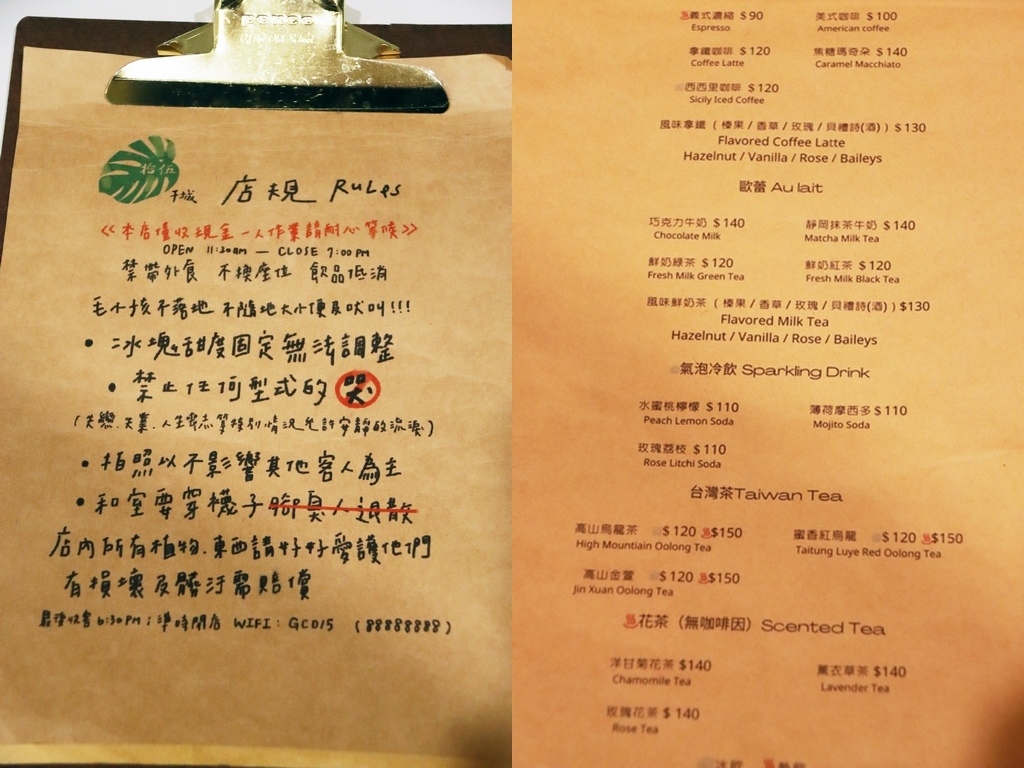 penco
拾伍
干城
店規 RuLes
《本店僅收現金一人作業請耐心等候》
OPEN 11:30am — CLOSE 7:00PM
禁帶外食 不換座位 飲品低消
毛小孩不落地 不隨地大小便及吠叫!!!
• 冰塊&甜度固定無法調整
• 禁止任何型式的哭
(失戀、失業、人生喪志等特別情況允許安靜的流淚)
• 拍照以不影響其他客人為主
• 和室要穿襪子腳臭人退散
店內所有植物、東西請好好愛護他們
有損壞及髒汙需賠償
最後收客6:30PM；準時閉店 WIFI: GC015 (88888888)
義式濃縮 $90 美式咖啡 $100
Espresso American coffee
拿鐵咖啡 $120 焦糖瑪奇朵 $140
Coffee Latte Caramel Macchiato
西西里咖啡 $120
Sicily Iced Coffee
風味拿鐵 ( 榛果 / 香草 / 玫瑰 / 貝禮詩(酒) ) $130
Flavored Coffee Latte
Hazelnut / Vanilla / Rose / Baileys
歐蕾 Au lait
巧克力牛奶 $140 靜岡抹茶牛奶 $140
Chocolate Milk Matcha Milk Tea
鮮奶綠茶 $120 鮮奶紅茶 $120
Fresh Milk Green Tea Fresh Milk Black Tea
風味鮮奶茶 ( 榛果 / 香草 / 玫瑰 / 貝禮詩(酒) ) $130
Flavored Milk Tea
Hazelnut / Vanilla / Rose / Baileys
氣泡冷飲 Sparkling Drink
水蜜桃檸檬 $110 薄荷摩西多 $110
Peach Lemon Soda Mojito Soda
玫瑰荔枝 $110
Rose Litchi Soda
台灣茶Taiwan Tea
高山烏龍茶 $120 $150 蜜香紅烏龍 $120 $150
High Mountiain Oolong Tea Taitung Luye Red Oolong Tea
高山金萱 $120 $150
Jin Xuan Oolong Tea
花茶（無咖啡因）Scented Tea
洋甘菊花茶 $140 薰衣草茶 $140
Chamomile Tea Lavender Tea
玫瑰花茶 $140
Rose Tea